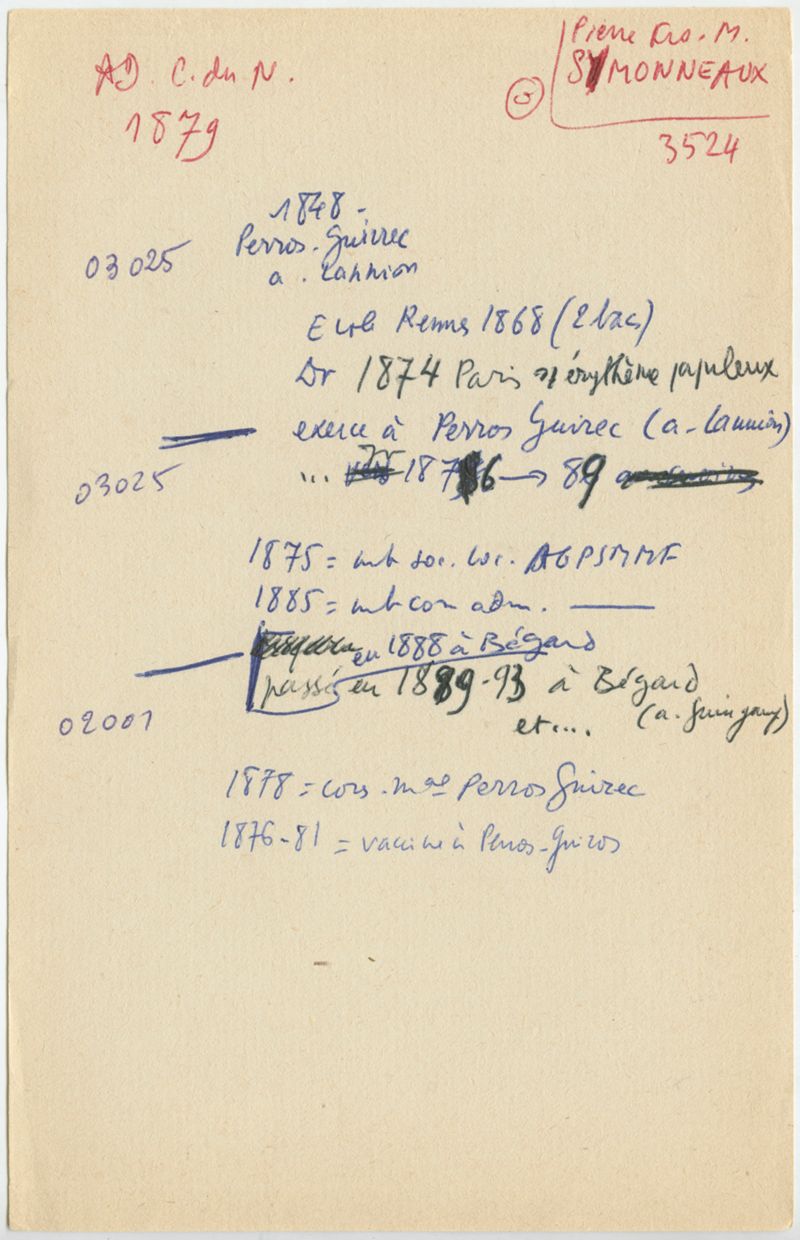 AD. C. du N.
1879
Pierre Fro. M.
SYMONNEAUX
3524
1848 -
03025 Perros-Guirec
a. Lannion
Ecole Rennes 1868 (2 bac)
Dr 1874 Paris s/ érythème papuleux
exerce à Perros Guirec (a. Lannion)
03025 ... 1876 → 89
1875 = mb soc. loc. AGPSMMF
1885 = mb com adm. ———
en 1888 à Bégard
passé en 1889-93 à Bégard
02001 et... (a. Guingamp)
1878 = cons. mal Perros Guirec
1876-81 = vaccine à Perros-Guiros